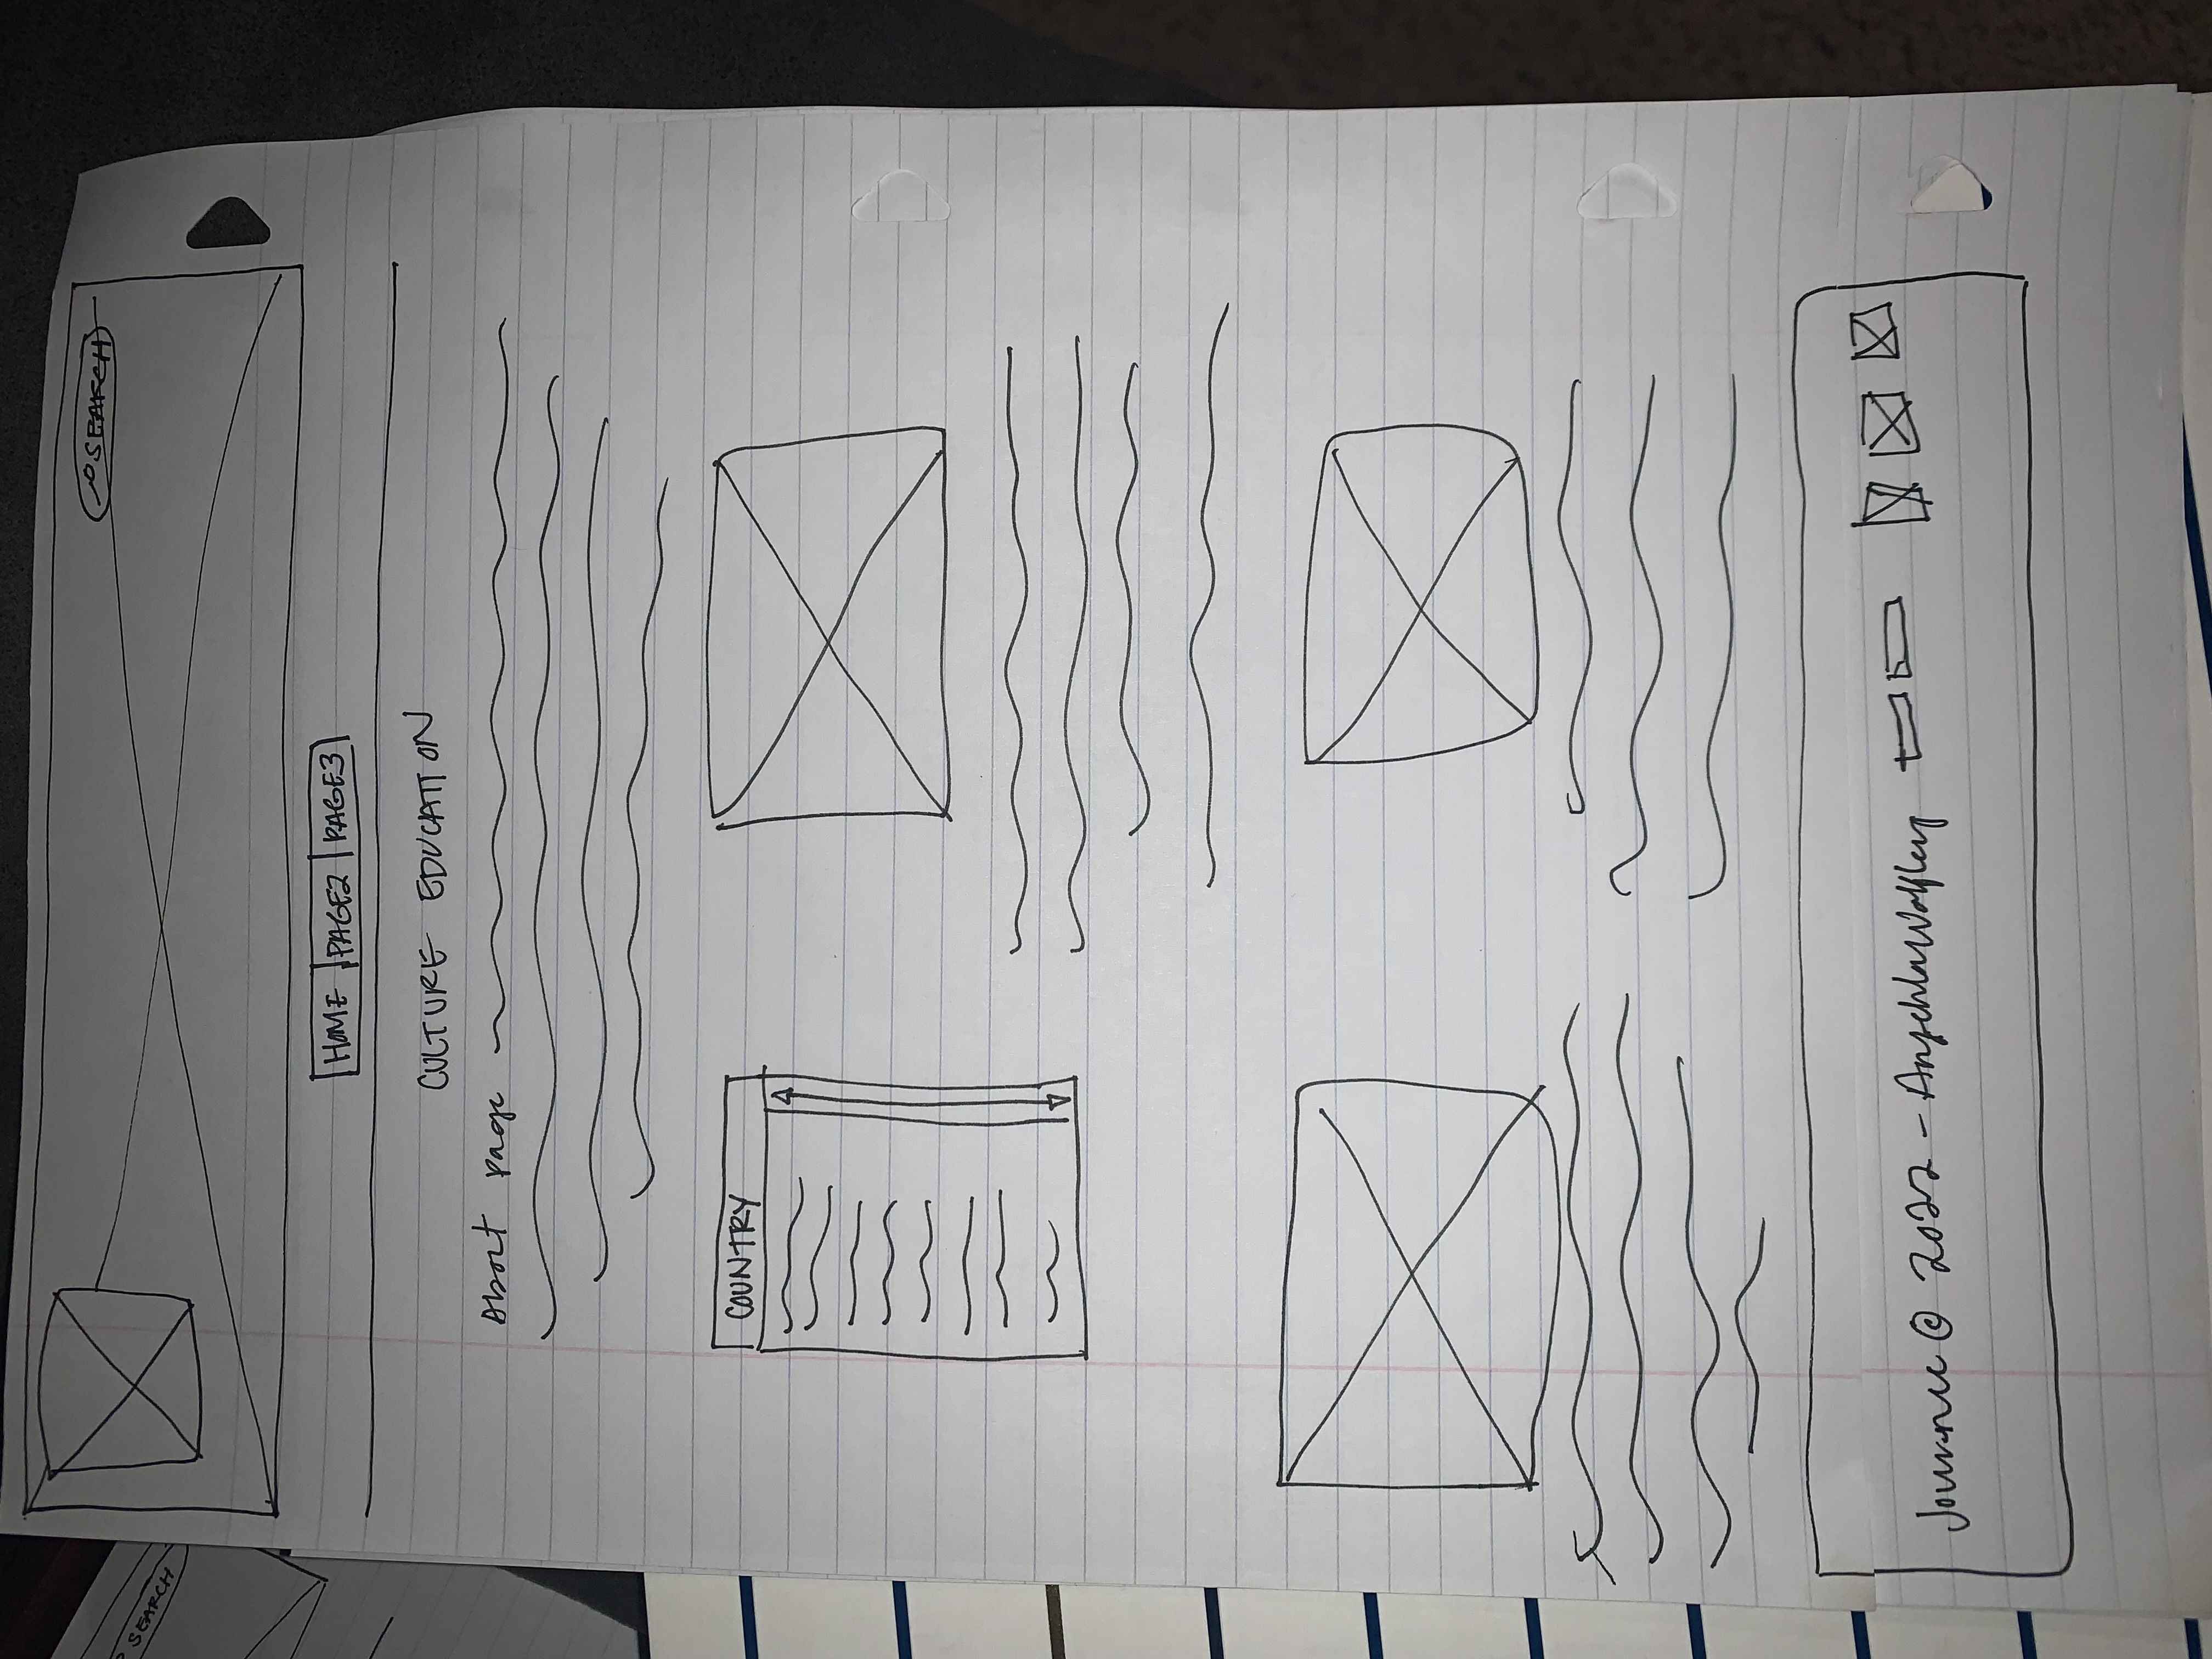 SEARCH
SEARCH
HOME PAGE2 PAGE3
CULTURE EDUCATION
About page
COUNTRY
Journee © 2022 -